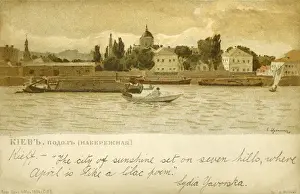 КІЕВЪ, ПОДОЛЪ (НАБЕРЕЖНАЯ)
Kieff - "The city of sunshine set on seven hills, where
April is like a lilac poem".
Lydia Yavorska